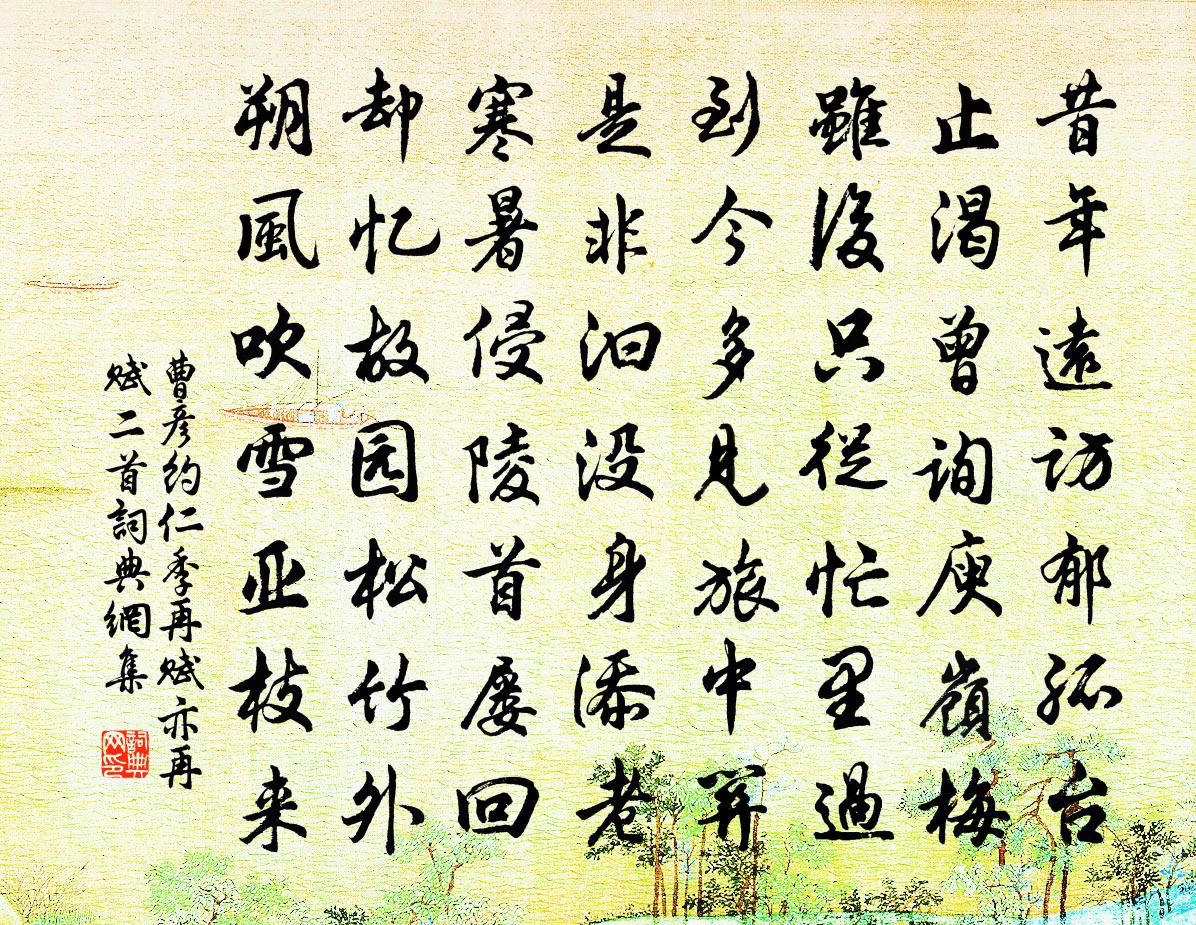 昔年遠訪郁孤台
止渴曾詢庾嶺梅
雖後只從忙里過
到今多見旅中開
是非汩没身添老
寒暑侵陵首屡回
却忆故园松竹外
朔風吹雪亚枝来
曹彦約仁季再赋亦再
赋二首詞典網集
詞典
网印